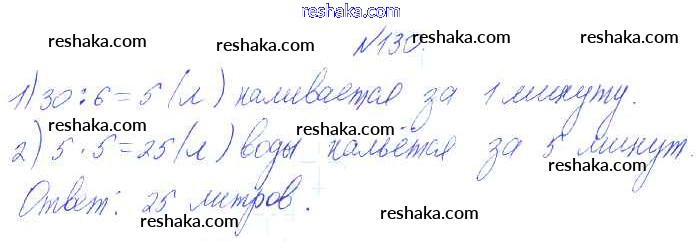 reshaka.com
reshaka.com reshaka.com №130. reshaka.com
1) 30:6=5 (л) наливается за 1 минуту.
reshaka.com reshaka.com reshaka.com
2) 5·5=25 (л) воды нальётся за 5 минут.
reshaka.com reshaka.com
Ответ: 25 литров.
reshaka.com reshaka.com
reshaka.com